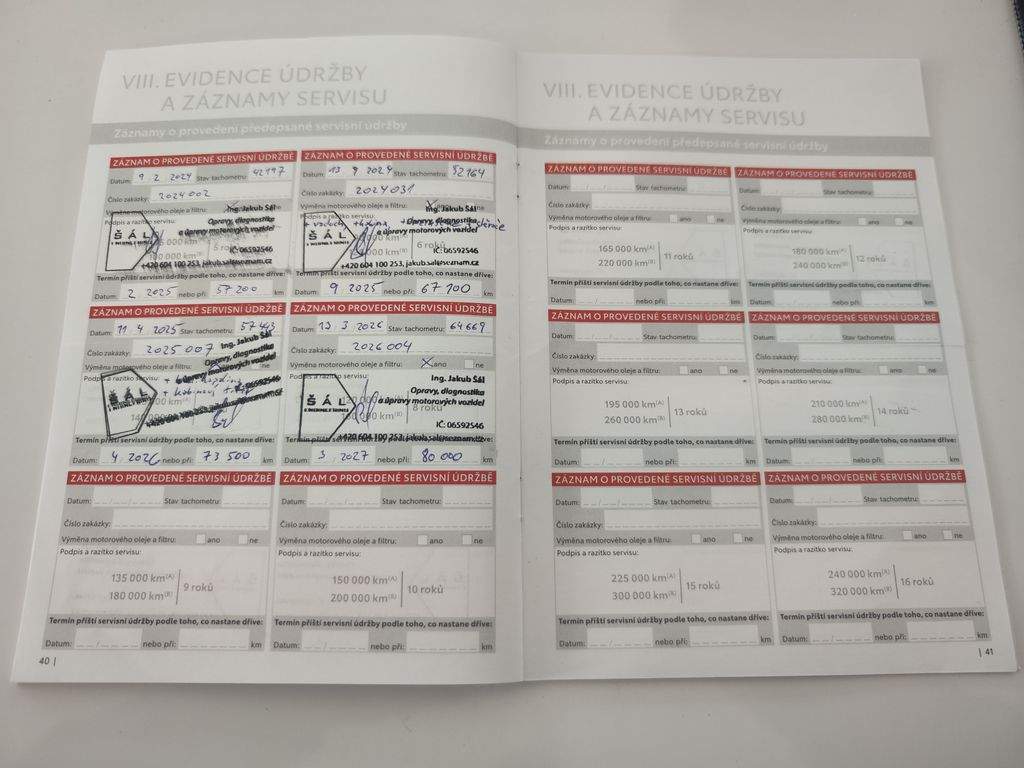 VIII. EVIDENCE ÚDRŽBY
A ZÁZNAMY SERVISU
Záznamy o provedení předepsané servisní údržby
ZÁZNAM O PROVEDENÉ SERVISNÍ ÚDRŽBĚ
Datum: 9 2 2024 Stav tachometru: 42197
Číslo zakázky: 2024002
Výměna motorového oleje a filtru: ne
Podpis a razítko servisu:
Ing. Jakub Šál
Opravy, diagnostika
a úpravy motorových vozidel
ŠÁL
IČ: 06592546
+420 604 100 253, jakub.sal@seznam.cz
Termín příští servisní údržby podle toho, co nastane dříve:
Datum: 2 2025 nebo při: 57 200 km
ZÁZNAM O PROVEDENÉ SERVISNÍ ÚDRŽBĚ
Datum: 13 9 2024 Stav tachometru: 52164
Číslo zakázky: 2024031
Výměna motorového oleje a filtru:
Podpis a razítko servisu:
Ing. Jakub Šál
Opravy, diagnostika
a úpravy motorových vozidel
ŠÁL
6 roků
IČ: 06592546
+420 604 100 253, jakub.sal@seznam.cz
Termín příští servisní údržby podle toho, co nastane dříve:
Datum: 9 2025 nebo při: 67 100 km
ZÁZNAM O PROVEDENÉ SERVISNÍ ÚDRŽBĚ
Datum: 11 4 2025 Stav tachometru: 57443
Číslo zakázky: 2025007
Výměna motorového oleje a filtru:
Podpis a razítko servisu:
Ing. Jakub Šál
Opravy, diagnostika
a úpravy motorových vozidel
ŠÁL
Termín příští servisní údržby podle toho, co nastane dříve:
Datum: 4 2026 nebo při: 73 500 km
ZÁZNAM O PROVEDENÉ SERVISNÍ ÚDRŽBĚ
Datum: 13 3 2026 Stav tachometru: 64669
Číslo zakázky: 2026004
Výměna motorového oleje a filtru: X ano ne
Podpis a razítko servisu:
Ing. Jakub Šál
Opravy, diagnostika
a úpravy motorových vozidel
ŠÁL
8 roků
IČ: 06592546
+420 604 100 253, jakub.sal@seznam.cz
Termín příští servisní údržby podle toho, co nastane dříve:
Datum: 3 2027 nebo při: 80 000 km
ZÁZNAM O PROVEDENÉ SERVISNÍ ÚDRŽBĚ
Datum: Stav tachometru:
Číslo zakázky:
Výměna motorového oleje a filtru: ano ne
Podpis a razítko servisu:
135 000 km(A)
180 000 km(B)
9 roků
Termín příští servisní údržby podle toho, co nastane dříve:
Datum: nebo při: km
ZÁZNAM O PROVEDENÉ SERVISNÍ ÚDRŽBĚ
Datum: Stav tachometru:
Číslo zakázky:
Výměna motorového oleje a filtru: ano ne
Podpis a razítko servisu:
150 000 km(A)
200 000 km(B)
10 roků
Termín příští servisní údržby podle toho, co nastane dříve:
Datum: nebo při: km
40 |
VIII. EVIDENCE ÚDRŽBY
A ZÁZNAMY SERVISU
Záznamy o provedení předepsané servisní údržby
ZÁZNAM O PROVEDENÉ SERVISNÍ ÚDRŽBĚ
Datum: Stav tachometru:
Číslo zakázky:
Výměna motorového oleje a filtru: ano ne
Podpis a razítko servisu:
165 000 km(A)
220 000 km(B)
11 roků
Termín příští servisní údržby podle toho, co nastane dříve:
Datum: nebo při: km
ZÁZNAM O PROVEDENÉ SERVISNÍ ÚDRŽBĚ
Datum: Stav tachometru:
Číslo zakázky:
Výměna motorového oleje a filtru: ano ne
Podpis a razítko servisu:
180 000 km(A)
240 000 km(B)
12 roků
Termín příští servisní údržby podle toho, co nastane dříve:
Datum: nebo při: km
ZÁZNAM O PROVEDENÉ SERVISNÍ ÚDRŽBĚ
Datum: Stav tachometru:
Číslo zakázky:
Výměna motorového oleje a filtru: ano ne
Podpis a razítko servisu:
195 000 km(A)
260 000 km(B)
13 roků
Termín příští servisní údržby podle toho, co nastane dříve:
Datum: nebo při: km
ZÁZNAM O PROVEDENÉ SERVISNÍ ÚDRŽBĚ
Datum: Stav tachometru:
Číslo zakázky:
Výměna motorového oleje a filtru: ano ne
Podpis a razítko servisu:
210 000 km(A)
280 000 km(B)
14 roků
Termín příští servisní údržby podle toho, co nastane dříve:
Datum: nebo při: km
ZÁZNAM O PROVEDENÉ SERVISNÍ ÚDRŽBĚ
Datum: Stav tachometru:
Číslo zakázky:
Výměna motorového oleje a filtru: ano ne
Podpis a razítko servisu:
225 000 km(A)
300 000 km(B)
15 roků
Termín příští servisní údržby podle toho, co nastane dříve:
Datum: nebo při: km
ZÁZNAM O PROVEDENÉ SERVISNÍ ÚDRŽBĚ
Datum: Stav tachometru:
Číslo zakázky:
Výměna motorového oleje a filtru: ano ne
Podpis a razítko servisu:
240 000 km(A)
320 000 km(B)
16 roků
Termín příští servisní údržby podle toho, co nastane dříve:
Datum: nebo při: km
| 41